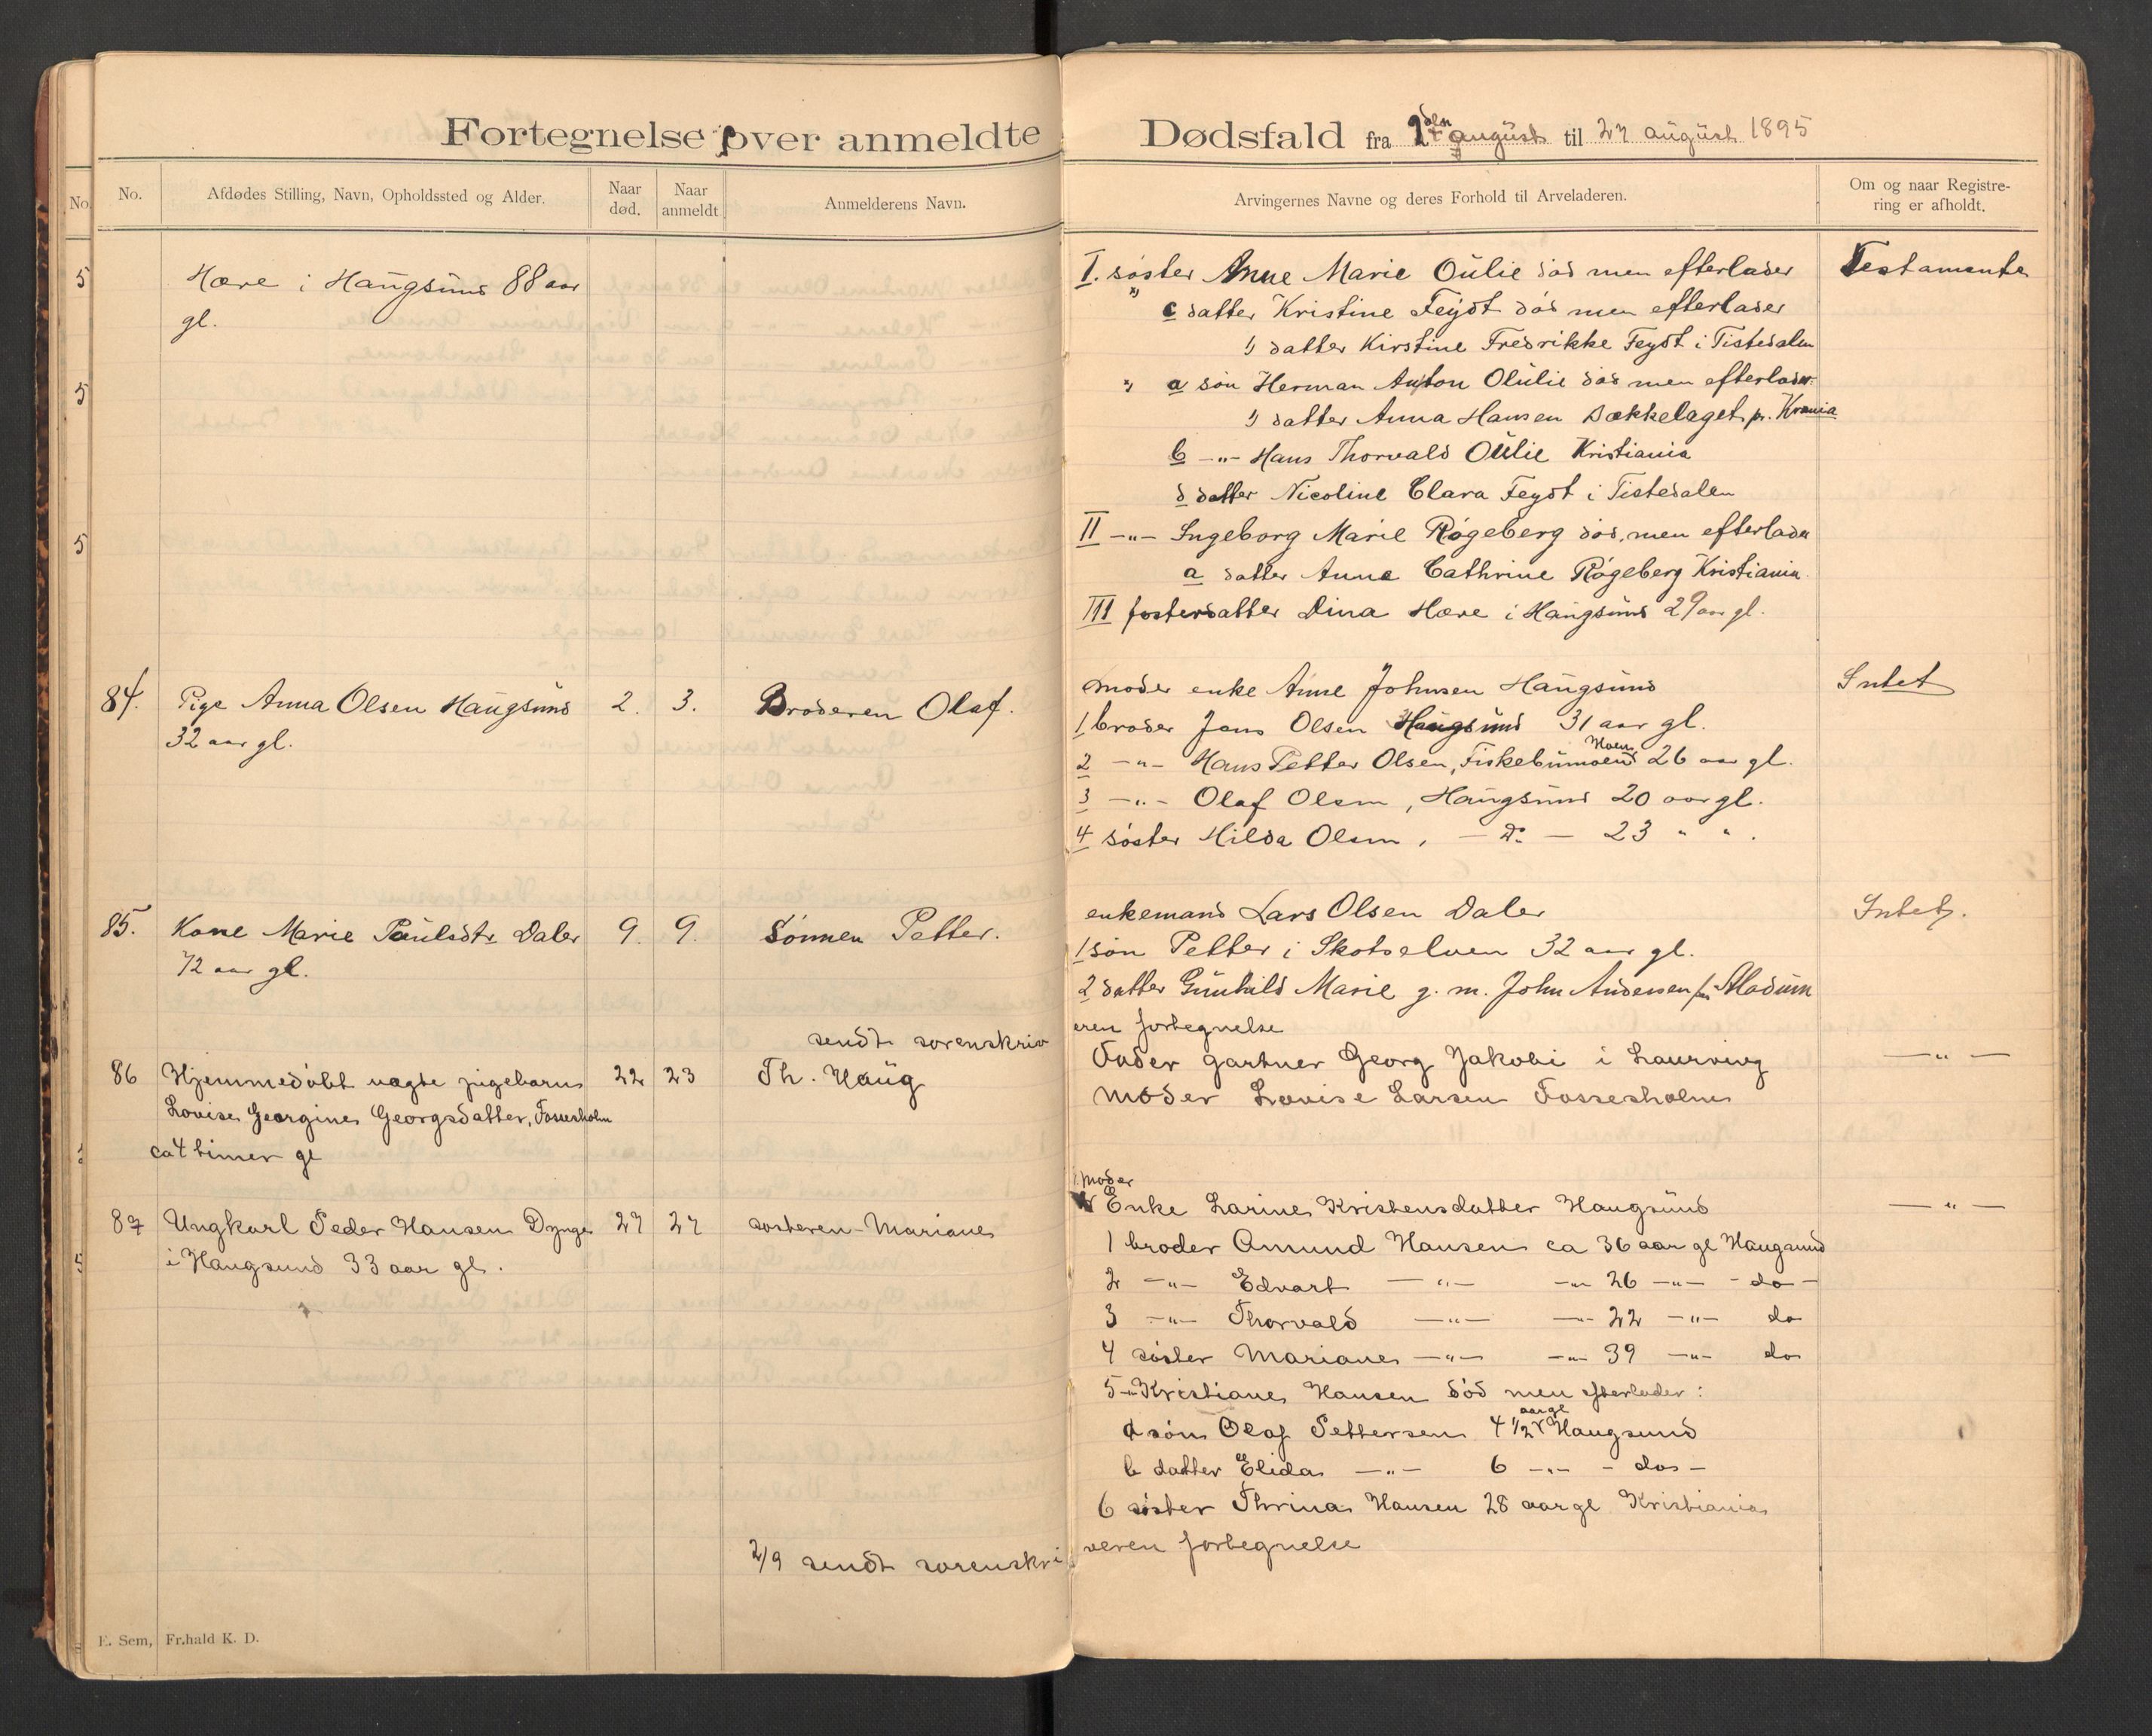 Fortegnelse over anmeldte Dødsfald fra 1ste august til 27 august 1895
No.
No. Afdødes Stilling, Navn, Opholdssted og Alder. Naar død. Naar anmeldt. Anmelderens Navn.
Arvingernes Navne og deres Forhold til Arveladeren. Om og naar Registrering er afholdt.
Hære i Haugsund 88 aar
gl.
I. søster Anne Marie Oulie død men efterlader Testamente
c datter Kristine Feydt død men efterlader
1) datter Kirstine Fredrikke Feydt i Tistedalen
a søn Herman Anton Oulie død men efterlader
1) datter Anna Hansen Bækkelaget pr. Krania
b -"- Hans Thorvald Oulie Kristiania
d datter Nicoline Clara Feydt i Tistedalen
II -"- Ingeborg Marie Røgeberg død, men efterlader
a datter Anne Cathrine Røgeberg Kristiania
III fosterdatter Dina Hære i Haugsund 29 aar gl.
84. Pige Anna Olsen Haugsund 2. 3. Broderen Olaf.
32 aar gl.
moder enke Anne Johnsen Haugsund Intet
1 broder Jans Olsen Haugsund 31 aar gl.
2 -"- Hans Petter Olsen, Fiskebummoen Hoen 26 aar gl.
3 -"- Olaf Olsen, Haugsund 20 aar gl.
4 søster Hilda Olsen, - Do - 23 " ".
85. Kone Marie Paulsdtr Daler 9. 9. Sønnen Petter.
72 aar gl.
enkemand Lars Olsen Daler Intet.
1 søn Petter i Skotselven 32 aar gl.
2 datter Gunhild Marie g. m. John Andersen Modum
sendt sorenskriveren fortegnelse
86 Hjemmedøbt uægte pigebarn 22 23 Th. Haug
Lovise Georgine Georgsdatter, Fossesholm
ca 4 timer gl
Fader gartner Georg Jakobi i Laurvig -"-
moder Lovise Larsen Fossesholm
87 Ungkarl Peder Hansen Dynge 27 27 søsteren Mariane
i Haugsund 33 aar gl.
moder
Enke Larine Kristensdatter Haugsund -"-
1 broder Amund Hansen ca 36 aar gl Haugsund
2 -"- Edvart -"- -"- 26 -"- - do -
3 -"- Thorvald -"- -"- 22 -"- do
4 søster Mariane -"- -"- 39 -"- do
5 -"- Kristiane Hansen død men efterlader:
a søn Olaf Pettersen 4 1/2 aar gl Haugsund
b datter Elida -"- 6 -"- - do -
6 søster Thrina Hansen 28 aar gl Kristiania
2/9 sendt sorenskriveren fortegnelse
E. Sem, Fr.hald K. D.